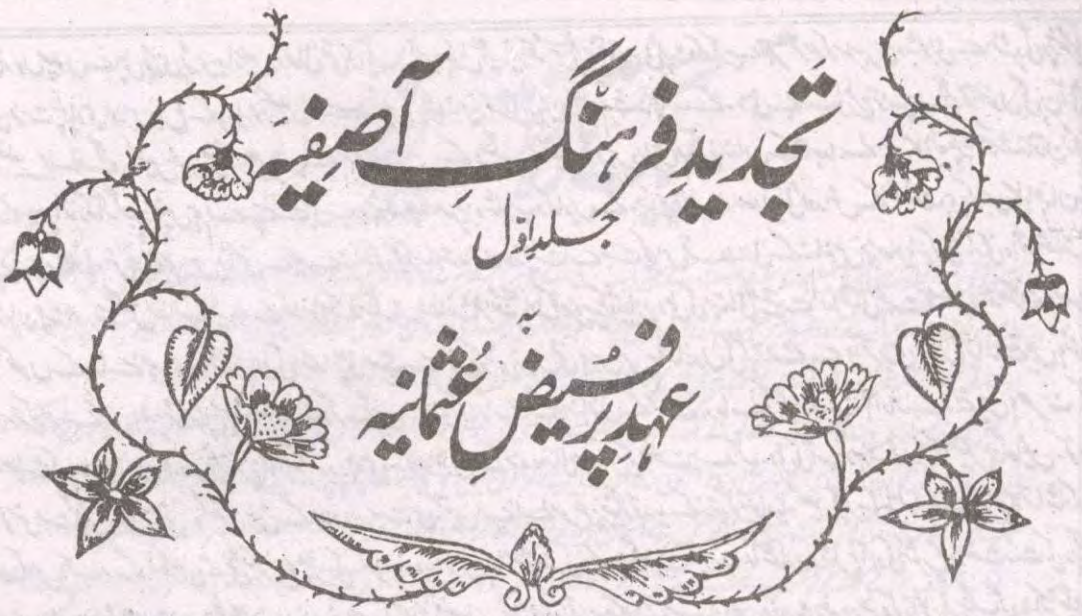 تجدیدِ فرہنگِ آصفیہ
جلد اوّل
بہ
عہدِ پُر فیضِ عُثمانیہ